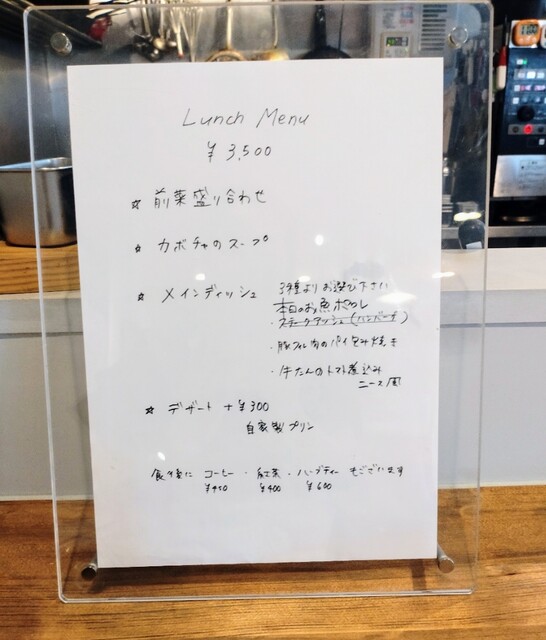 Lunch Menu
¥3,500
☆ 前菜盛り合わせ
☆ カボチャのスープ
☆ メインディッシュ 3種よりお選び下さい
本日のお魚ポワレ
・ステークアッシェ(ハンバーグ)
・豚フィレ肉のパイ包み焼き
・牛たんのトマト煮込み
ニース風
☆ デザート +¥300
自家製プリン
食後に コーヒー・紅茶・ハーブティー もございます
¥400 ¥600